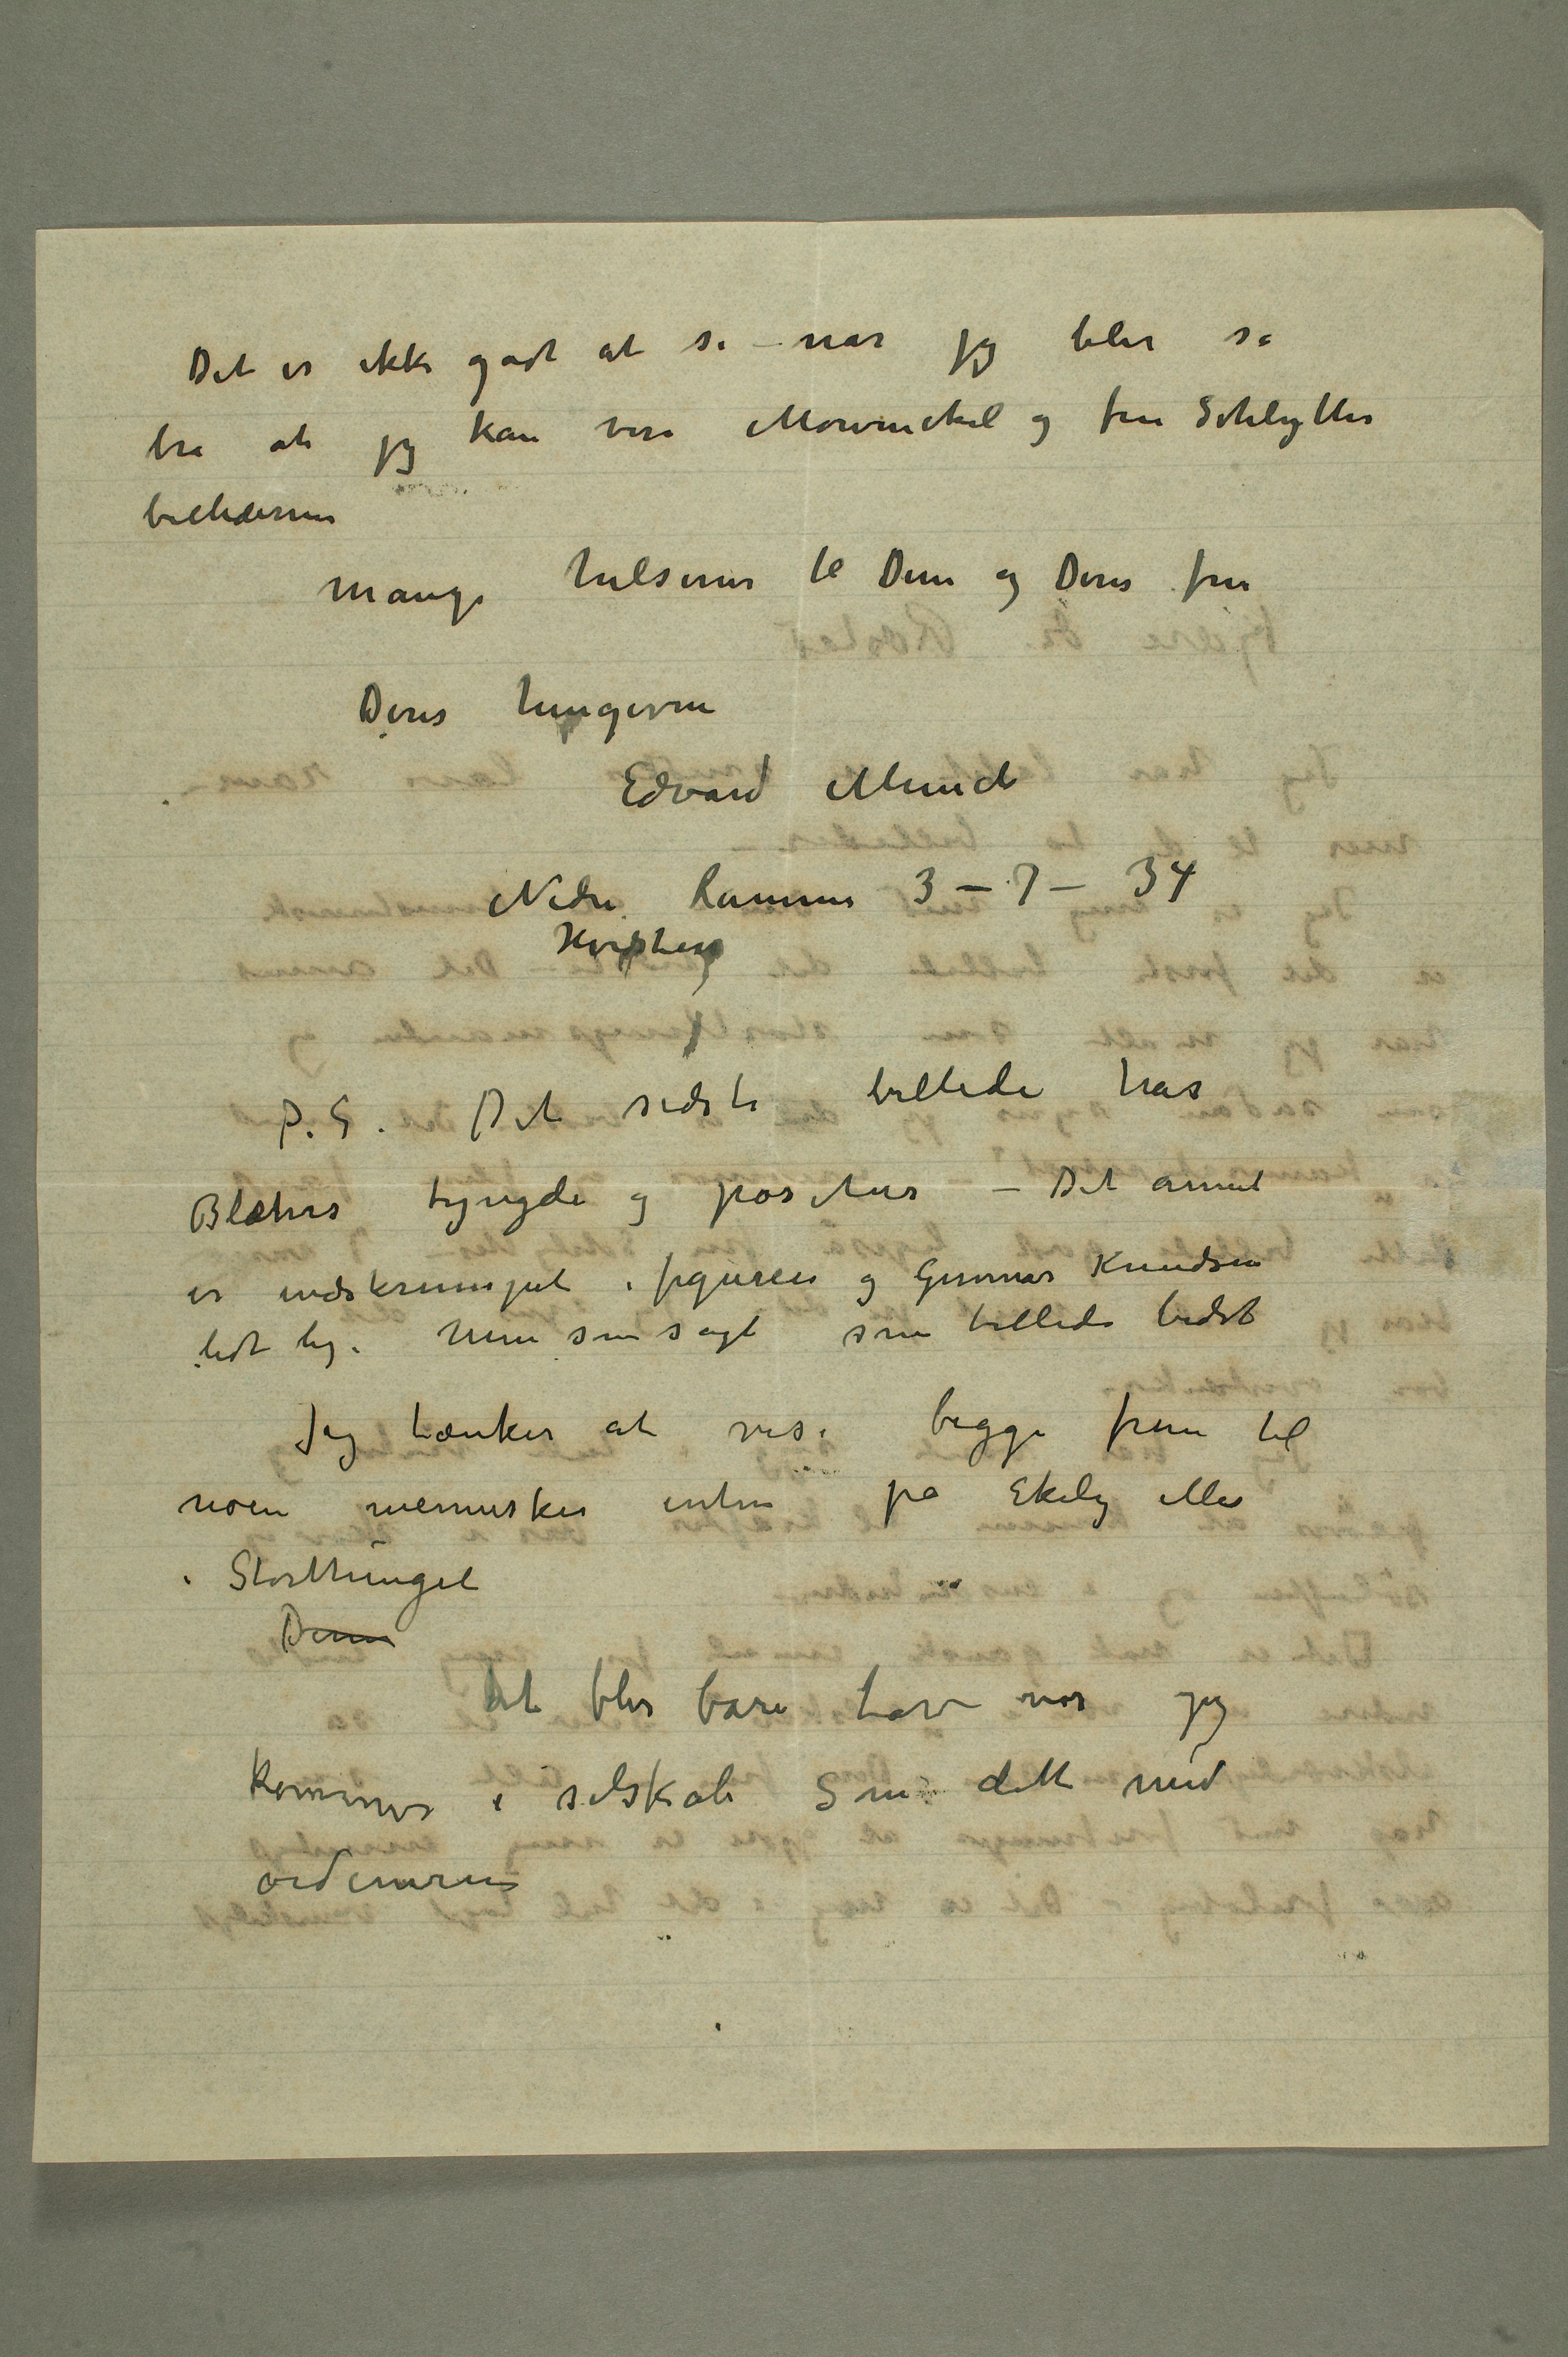 Det er ikke godt at si – når jeg blir så
bra at jeg kan vise Mowinckel og fru Schlytter
billederne
mange hilsener til Dem og Deres frue
Deres hengivne
Edvard Munch
Nedre Ramme 3 – 7 – 34
Hvitsten
P.S. Det sidste billede har
Blæhrs tyngde og positur – Det annet
er indskrumpet i figuren og Gunnar Knudsen
lidt lig. Men som sagt som billede bedst
Jeg tænker at vise begge frem til
noen mennesker enten på Ekely eller
i Storthinget
Denne
Det blir bare tøv når jeg
kommer i selskab som dette med
ordenerne